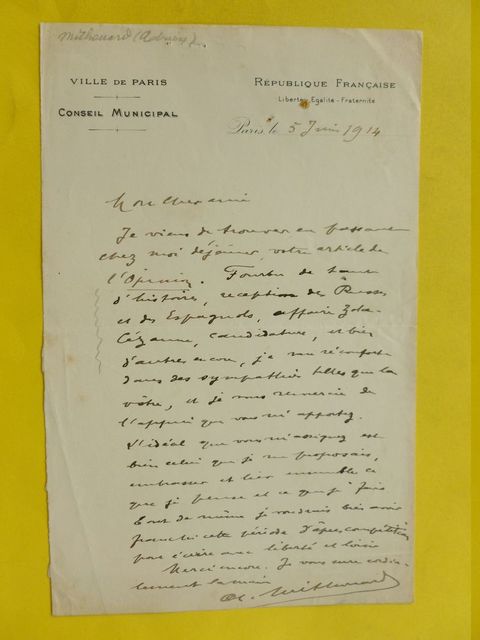 Mithouard (Adrien)
VILLE DE PARIS
CONSEIL MUNICIPAL
RÉPUBLIQUE FRANÇAISE
Liberté - Égalité - Fraternité
Paris, le 5 Juin 1914
Mon cher ami
Je viens de trouver en passant
chez moi déjeuner, votre article de
l'Opinion. Fourbu de tant
d'histoires, réception des Russes
et des Espagnols, affaire Zola-
Cézanne, candidature, et bien
d'autres encore, je me réconforte
dans des sympathies telles que la
vôtre, et je vous remercie de
l'appui que vous m'apportez.
L'idéal que vous m'assignez est
bien celui que je me proposais,
embrasser et lier ensemble ce
que je pense et ce que je fais
Tout de même je voudrais bien avoir
franchi cette période d'âpre compétition
pour écrire avec liberté et loisir
Merci encore. Je vous serre cordia-
lement la main
Ad. Mithouard